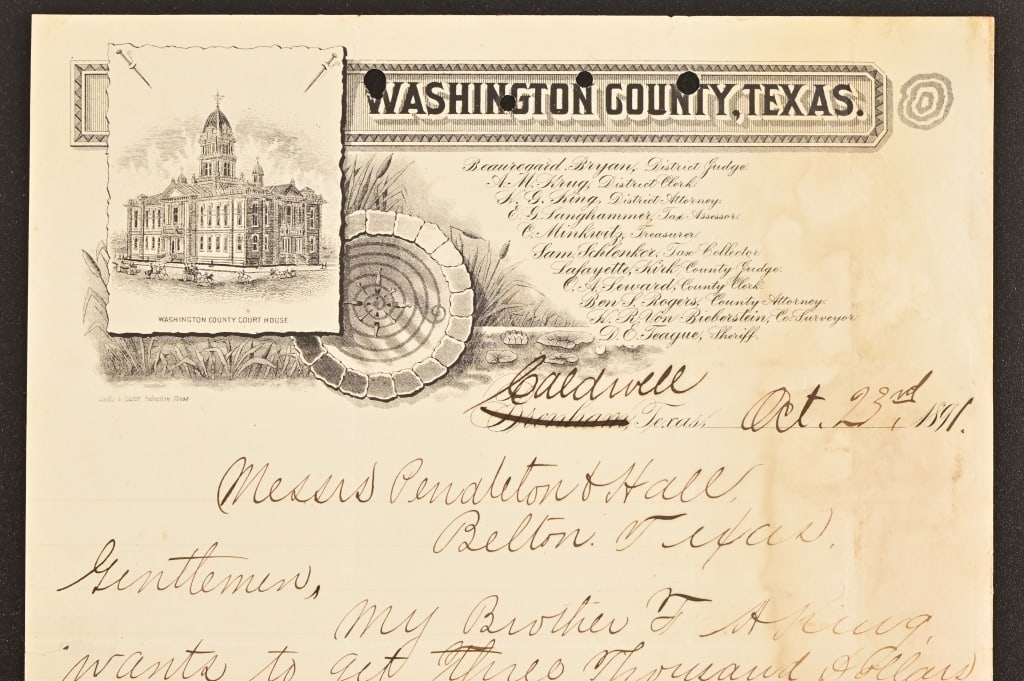 WASHINGTON COUNTY, TEXAS.
WASHINGTON COUNTY COURT HOUSE
Beauregard Bryan, District Judge.
A. M. Krug, District Clerk.
King, District Attorney.
E. G. Langhammer, Tax Assessor.
C. Minkwitz, Treasurer.
Sam. Schlenker, Tax Collector.
Lafayette Kirk County Judge.
C. A. Seward, County Clerk.
Ben S. Rogers, County Attorney.
Von Bieberstein, Co. Surveyor.
D. E. Teague, Sheriff.
Caldwell
Brenham, Texas, Oct. 23rd, 1891.
Messrs Pendleton & Hall,
Belton. Texas.
Gentlemen,
My Brother F A King,
wants to get Three Thousand dollars